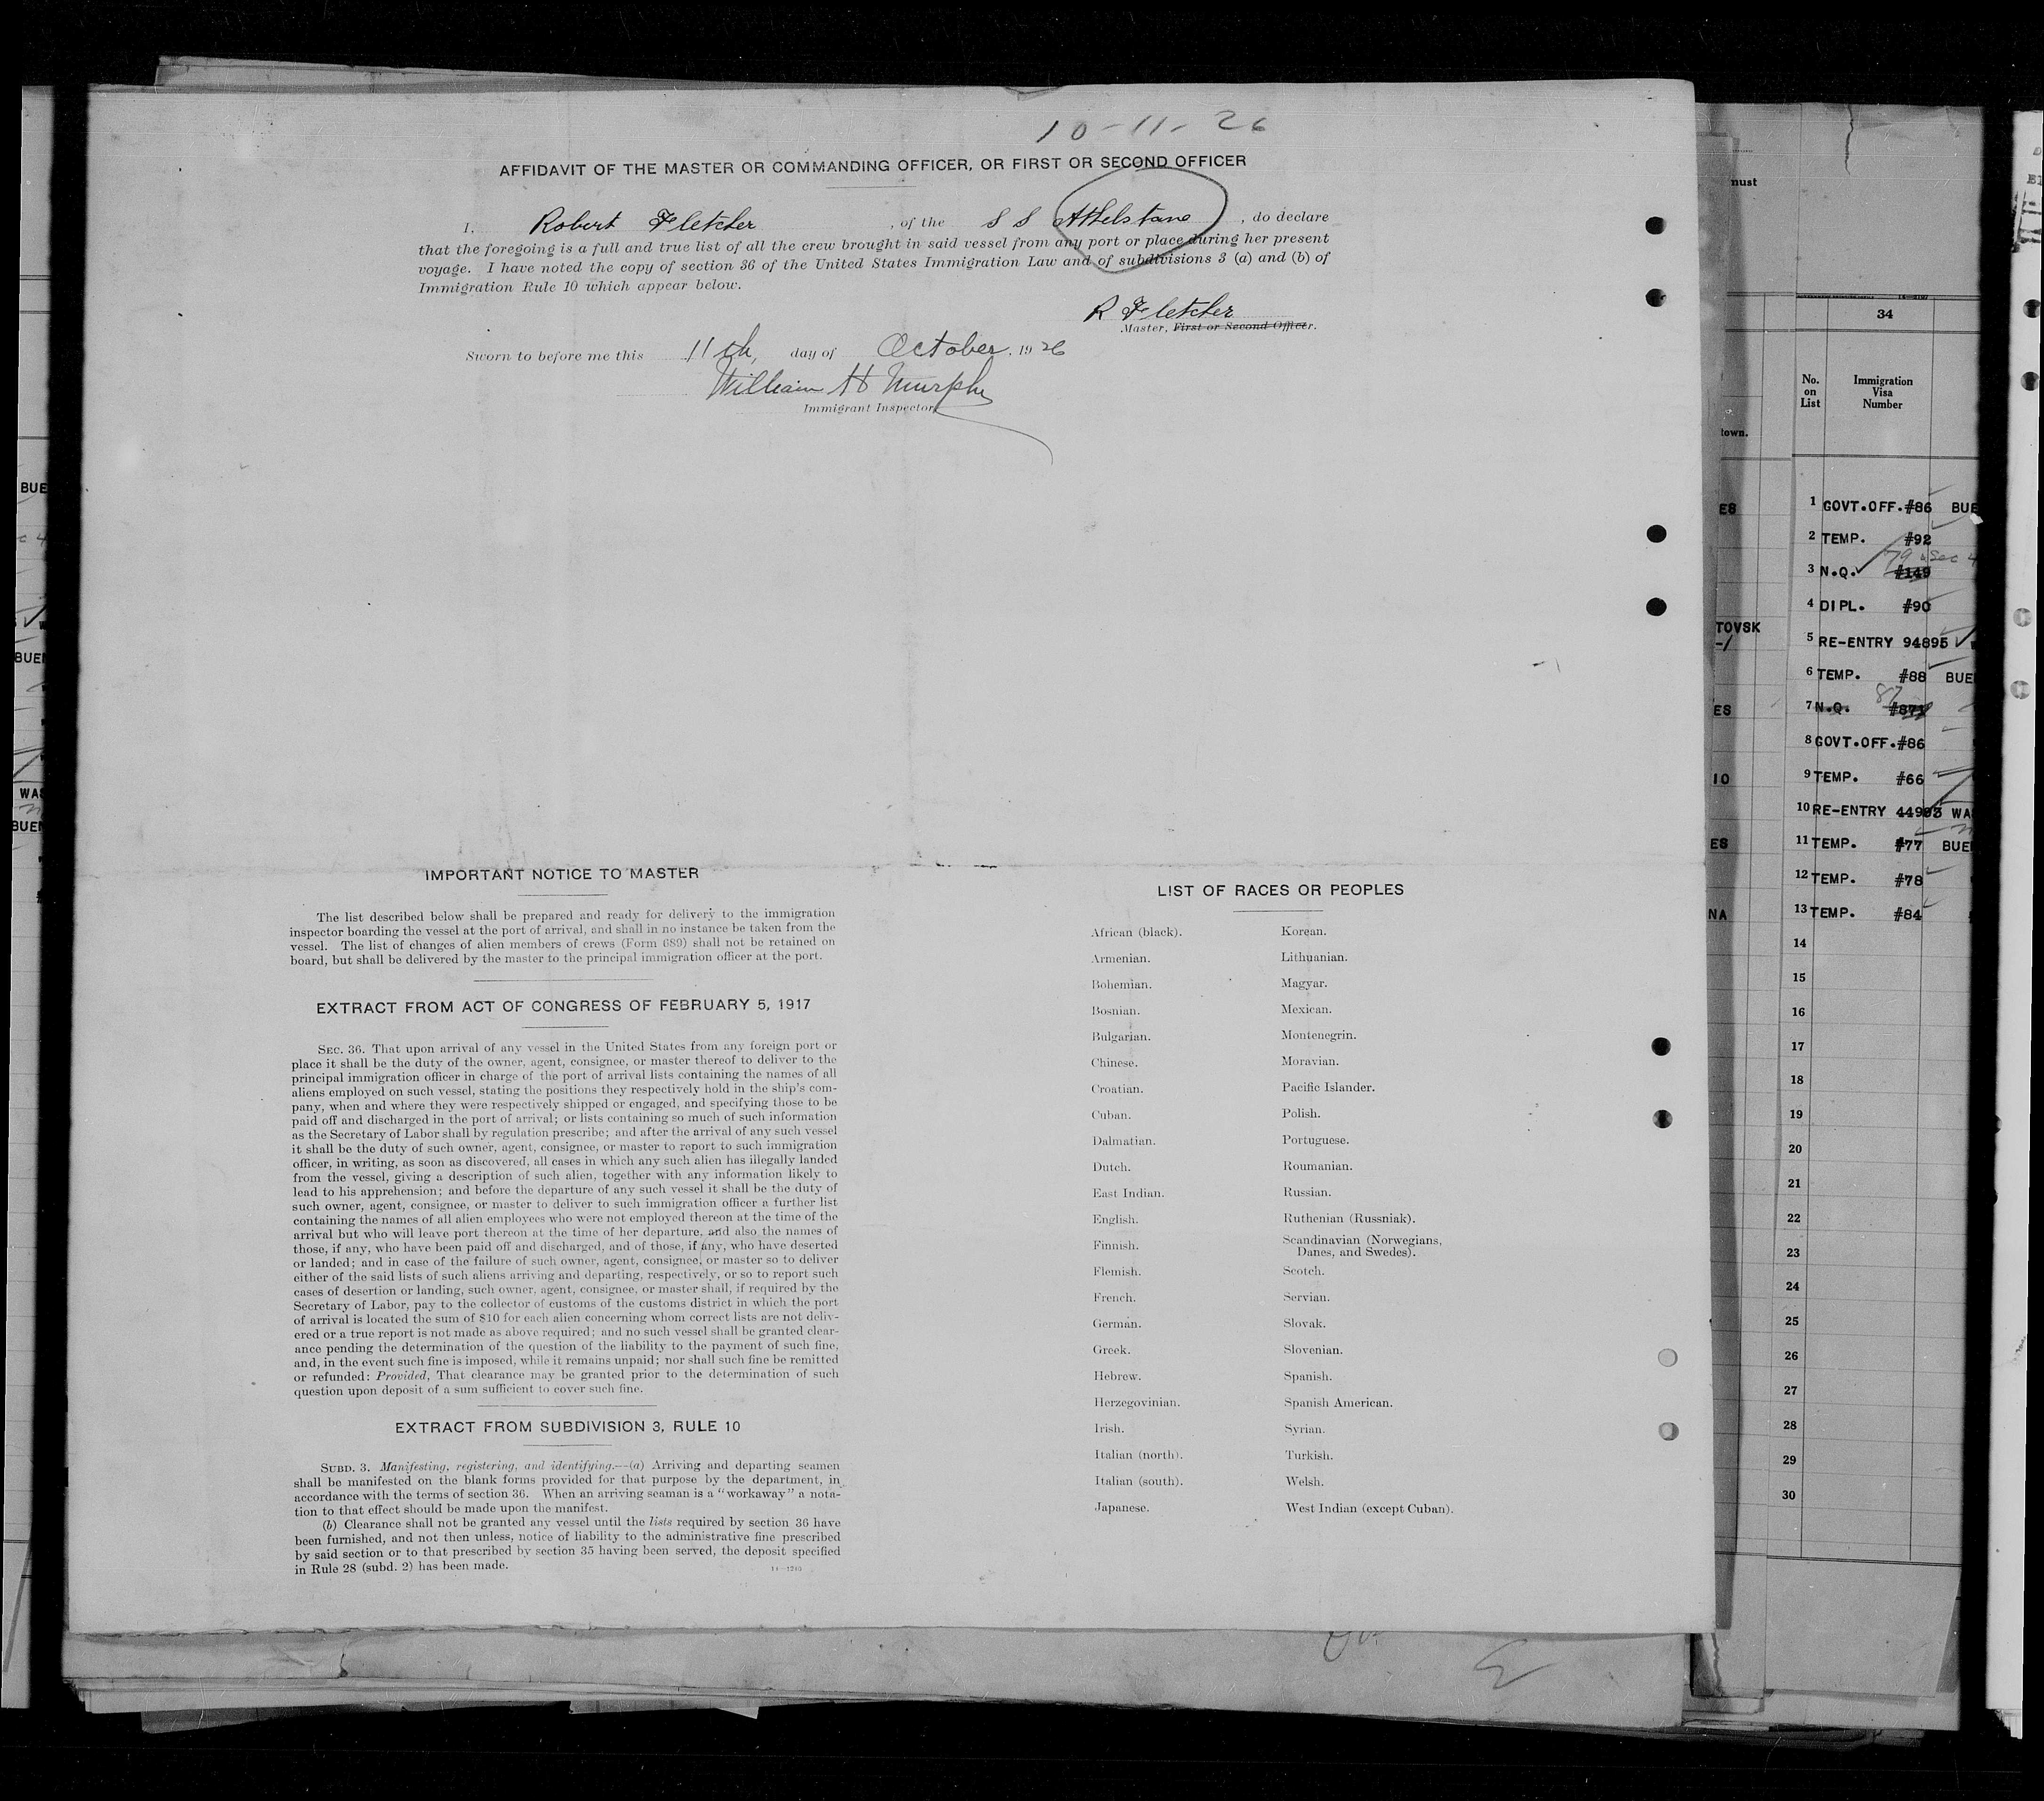 10-11-26
AFFIDAVIT OF THE MASTER OR COMMANDING OFFICER, OR FIRST OR SECOND OFFICER
I, Robert Fletcher, of the S S Athelstane, do declare
that the foregoing is a full and true list of all the crew brought in said vessel from any port or place during her present
voyage. I have noted the copy of section 36 of the United States Immigration Law and of subdivisions 3 (a) and (b) of
Immigration Rule 10 which appear below.
R Fletcher
Master, First or Second Officer.
Sworn to before me this 11th, day of October, 1926
William H Murphy
Immigrant Inspector
IMPORTANT NOTICE TO MASTER
The list described below shall be prepared and ready for delivery to the immigration
inspector boarding the vessel at the port of arrival, and shall in no instance be taken from the
vessel. The list of changes of alien members of crews (Form 689) shall not be retained on
board, but shall be delivered by the master to the principal immigration officer at the port.
EXTRACT FROM ACT OF CONGRESS OF FEBRUARY 5, 1917
SEC. 36. That upon arrival of any vessel in the United States from any foreign port or
place it shall be the duty of the owner, agent, consignee, or master thereof to deliver to the
principal immigration officer in charge of the port of arrival lists containing the names of all
aliens employed on such vessel, stating the positions they respectively hold in the ship's com-
pany, when and where they were respectively shipped or engaged, and specifying those to be
paid off and discharged in the port of arrival; or lists containing so much of such information
as the Secretary of Labor shall by regulation prescribe; and after the arrival of any such vessel
it shall be the duty of such owner, agent, consignee, or master to report to such immigration
officer, in writing, as soon as discovered, all cases in which any such alien has illegally landed
from the vessel, giving a description of such alien, together with any information likely to
lead to his apprehension; and before the departure of any such vessel it shall be the duty of
such owner, agent, consignee, or master to deliver to such immigration officer a further list
containing the names of all alien employees who were not employed thereon at the time of the
arrival but who will leave port thereon at the time of her departure, and also the names of
those, if any, who have been paid off and discharged, and of those, if any, who have deserted
or landed; and in case of the failure of such owner, agent, consignee, or master so to deliver
either of the said lists of such aliens arriving and departing, respectively, or so to report such
cases of desertion or landing, such owner, agent, consignee, or master shall, if required by the
Secretary of Labor, pay to the collector of customs of the customs district in which the port
of arrival is located the sum of $10 for each alien concerning whom correct lists are not deliv-
ered or a true report is not made as above required; and no such vessel shall be granted clear-
ance pending the determination of the question of the liability to the payment of such fine,
and, in the event such fine is imposed, while it remains unpaid; nor shall such fine be remitted
or refunded: Provided, That clearance may be granted prior to the determination of such
question upon deposit of a sum sufficient to cover such fine.
EXTRACT FROM SUBDIVISION 3, RULE 10
SUBD. 3. Manifesting, registering, and identifying.—(a) Arriving and departing seamen
shall be manifested on the blank forms provided for that purpose by the department, in
accordance with the terms of section 36. When an arriving seaman is a "workaway" a nota-
tion to that effect should be made upon the manifest.
(b) Clearance shall not be granted any vessel until the lists required by section 36 have
been furnished, and not then unless, notice of liability to the administrative fine prescribed
by said section or to that prescribed by section 35 having been served, the deposit specified
in Rule 28 (subd. 2) has been made.
LIST OF RACES OR PEOPLES
African (black). Korean.
Armenian. Lithuanian.
Bohemian. Magyar.
Bosnian. Mexican.
Bulgarian. Montenegrin.
Chinese. Moravian.
Croatian. Pacific Islander.
Cuban. Polish.
Dalmatian. Portuguese.
Dutch. Roumanian.
East Indian. Russian.
English. Ruthenian (Russniak).
Finnish. Scandinavian (Norwegians,
Danes, and Swedes).
Flemish. Scotch.
French. Servian.
German. Slovak.
Greek. Slovenian.
Hebrew. Spanish.
Herzegovinian. Spanish American.
Irish. Syrian.
Italian (north). Turkish.
Italian (south). Welsh.
Japanese. West Indian (except Cuban).
must
town.
ES
TOVSK
-/
ES
IO
ES
NA
34
No. on List
Immigration Visa Number
1 GOVT.OFF.#86 BUE
2 TEMP. #92
79 Sec 4
3 N.Q. #149
4 DIPL. #90
5 RE-ENTRY 94895
6 TEMP. #88 BUE
87
7 N.Q. #871
8 GOVT.OFF.#86
9 TEMP. #66
10 RE-ENTRY 44903 WA
11 TEMP. #77 BUE
12 TEMP. #78
13 TEMP. #84
14
15
16
17
18
19
20
21
22
23
24
25
26
27
28
29
30
BUE
BUE
WA
BUE